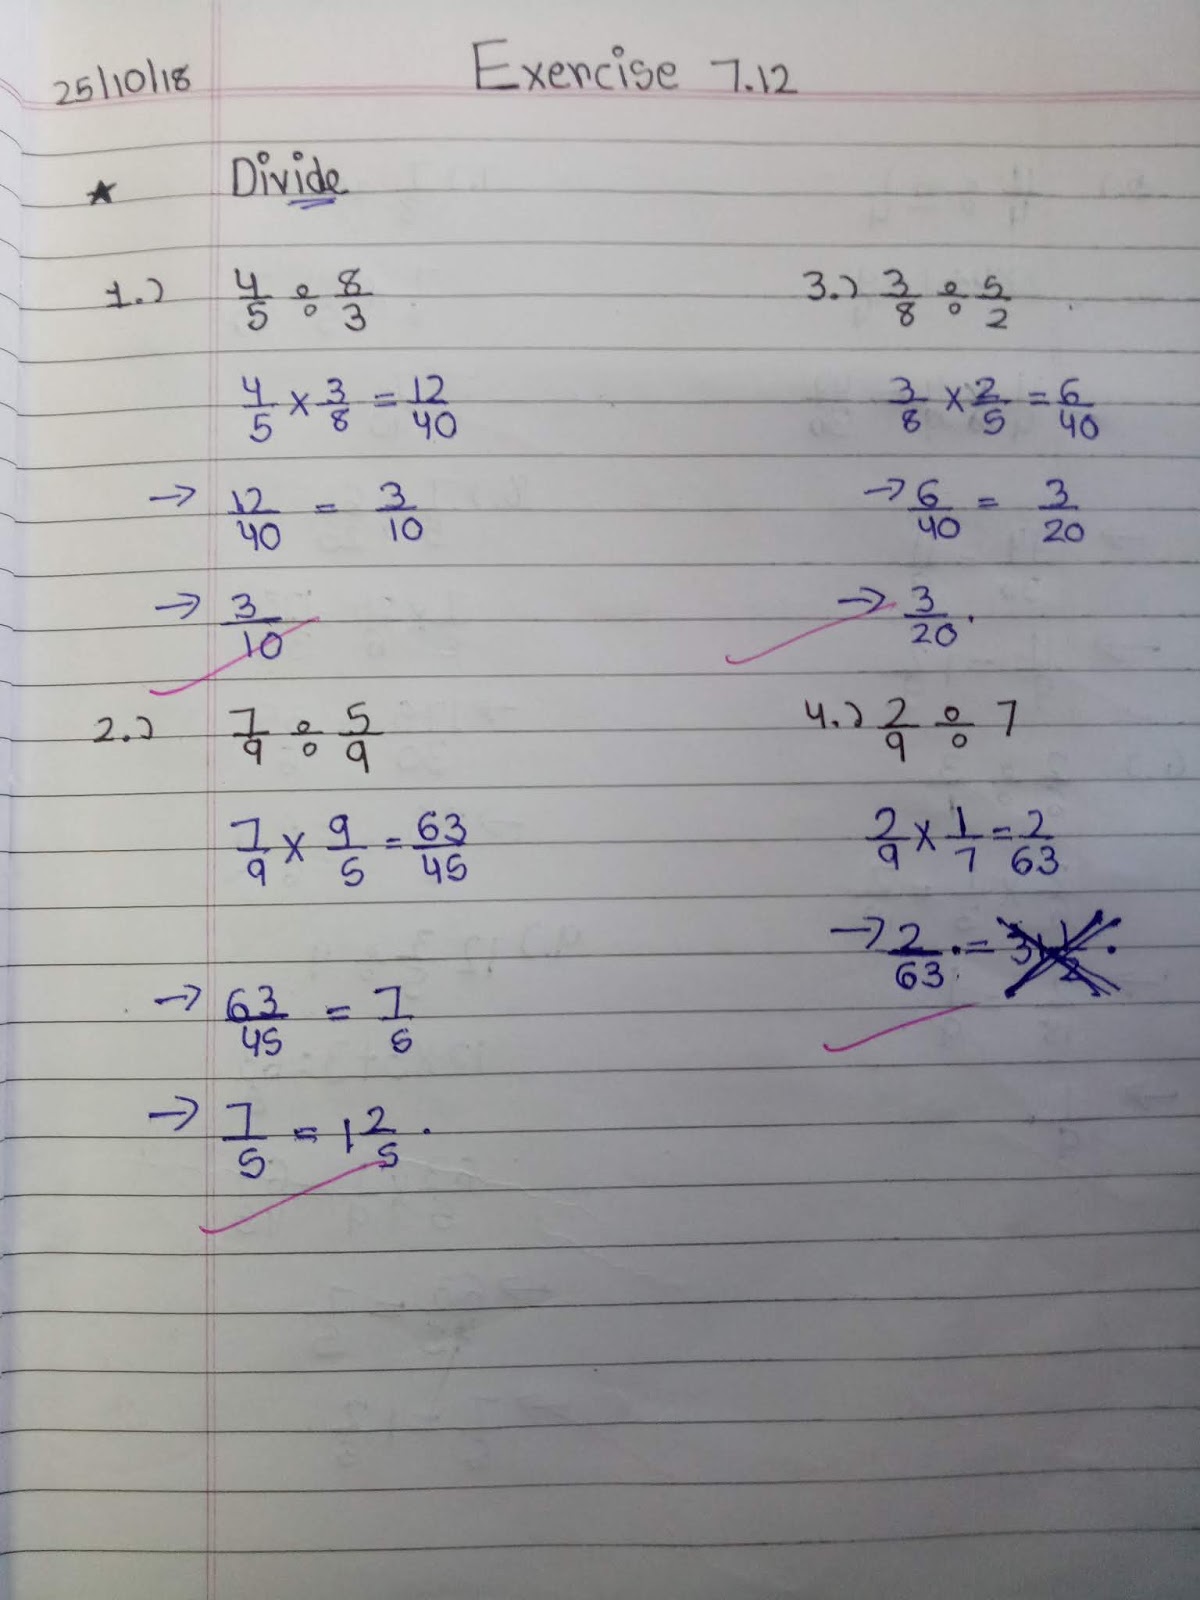 25/10/18 Exercise 7.12
★ Divide
1.) 4/5 ÷ 8/3
4/5 × 3/8 = 12/40
→ 12/40 = 3/10
→ 3/10
2.) 7/9 ÷ 5/9
7/9 × 9/5 = 63/45
→ 63/45 = 7/5
→ 7/5 = 1 2/5.
3.) 3/8 ÷ 5/2
3/8 × 2/5 = 6/40
→ 6/40 = 3/20
→ 3/20.
4.) 2/9 ÷ 7
2/9 × 1/7 = 2/63
→ 2/63. =